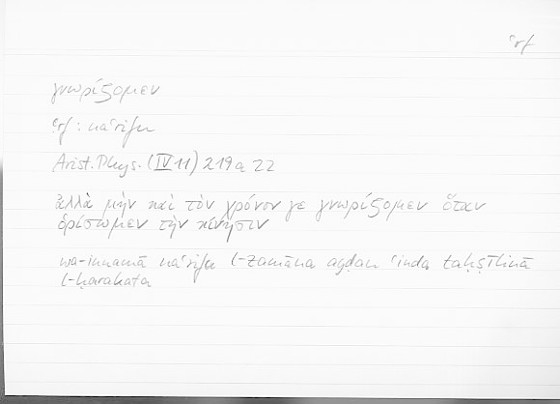 ʿrf
γνωρίζομεν
ʿrf: naʿrifu
Arist. Phys. (IV 11) 219 a 22
ἀλλὰ μὴν καὶ τὸν χρόνον γε γνωρίζομεν ὅταν
ὁρίσωμεν τὴν κίνησιν
wa-innamā naʿrifu l-zamāna ayḍan ʿinda taḥṣīlinā
l-ḥarakata